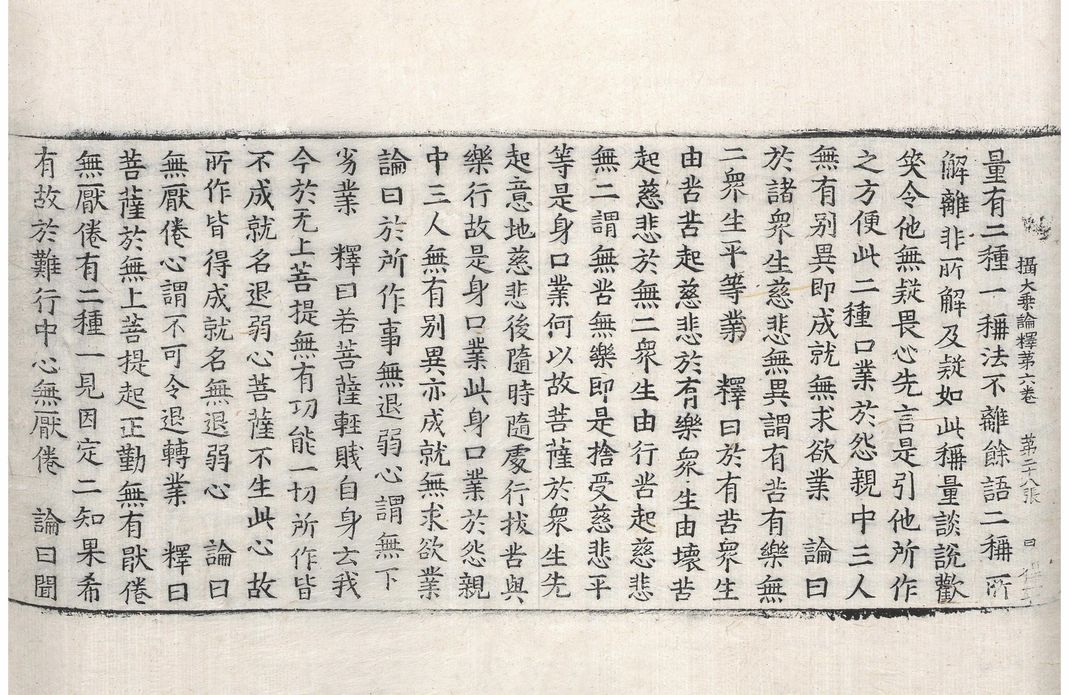 攝大乗論釋第六卷 第二十八張
量有二種一稱法不離餘語二稱所
解離非所解及疑如此稱量談說歡
笑令他無疑畏心先言是引他所作
之方便此二種口業於怨親中三人
無有別異即成就無求欲業 論曰
於諸衆生慈悲無異謂有苦有樂無
二衆生平等業 釋曰於有苦衆生
由苦苦起慈悲於有樂衆生由壞苦
起慈悲於無二衆生由行苦起慈悲
無二謂無苦無樂即是捨受慈悲平
等是身口業何以故菩薩於衆生先
起意地慈悲後隨時隨處行拔苦與
樂行故是身口業此身口業於怨親
中三人無有別異亦成就無求欲業
論曰於所作事無退弱心謂無下
劣業 釋曰若菩薩輕賤自身云我
今於无上菩提無有功能一切所作皆
不成就名退弱心菩薩不生此心故
所作皆得成就名無退弱心 論曰
無厭倦心謂不可令退轉業 釋曰
菩薩於無上菩提起正勤無有猒倦
無厭倦有二種一見因定二知果希
有故於難行中心無厭倦 論曰聞